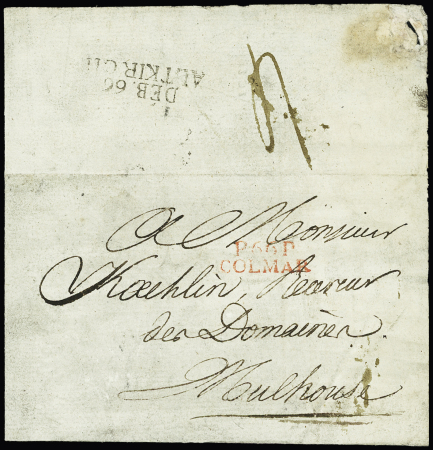 DEB. 66
ALTKIRCH
A Monsieur
P.66.P.
COLMAR
Kœchlin, Receveur
des Domaines
Mulhouse